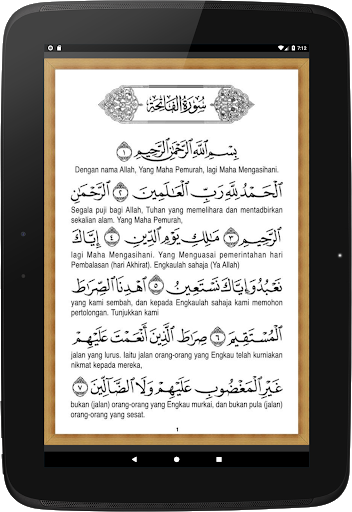 7:12
سورة الفاتحة
بِسْمِ ٱللَّهِ ٱلرَّحْمَٰنِ ٱلرَّحِيمِ ١
Dengan nama Allah, Yang Maha Pemurah, lagi Maha Mengasihani.
ٱلْحَمْدُ لِلَّهِ رَبِّ ٱلْعَٰلَمِينَ ٢ ٱلرَّحْمَٰنِ
Segala puji bagi Allah, Tuhan yang memelihara dan mentadbirkan
sekalian alam. Yang Maha Pemurah,
ٱلرَّحِيمِ ٣ مَٰلِكِ يَوْمِ ٱلدِّينِ ٤ إِيَّاكَ
lagi Maha Mengasihani. Yang Menguasai pemerintahan hari
Pembalasan (hari Akhirat). Engkaulah sahaja (Ya Allah)
نَعْبُدُ وَإِيَّاكَ نَسْتَعِينُ ٥ ٱهْدِنَا ٱلصِّرَٰطَ
yang kami sembah, dan kepada Engkaulah sahaja kami memohon
pertolongan. Tunjukkan kami
ٱلْمُسْتَقِيمَ ٦ صِرَٰطَ ٱلَّذِينَ أَنْعَمْتَ عَلَيْهِمْ
jalan yang lurus. Iaitu jalan orang-orang yang Engkau telah kurniakan
nikmat kepada mereka,
غَيْرِ ٱلْمَغْضُوبِ عَلَيْهِمْ وَلَا ٱلضَّآلِّينَ ٧
bukan (jalan) orang-orang yang Engkau murkai, dan bukan pula (jalan)
orang-orang yang sesat.
1